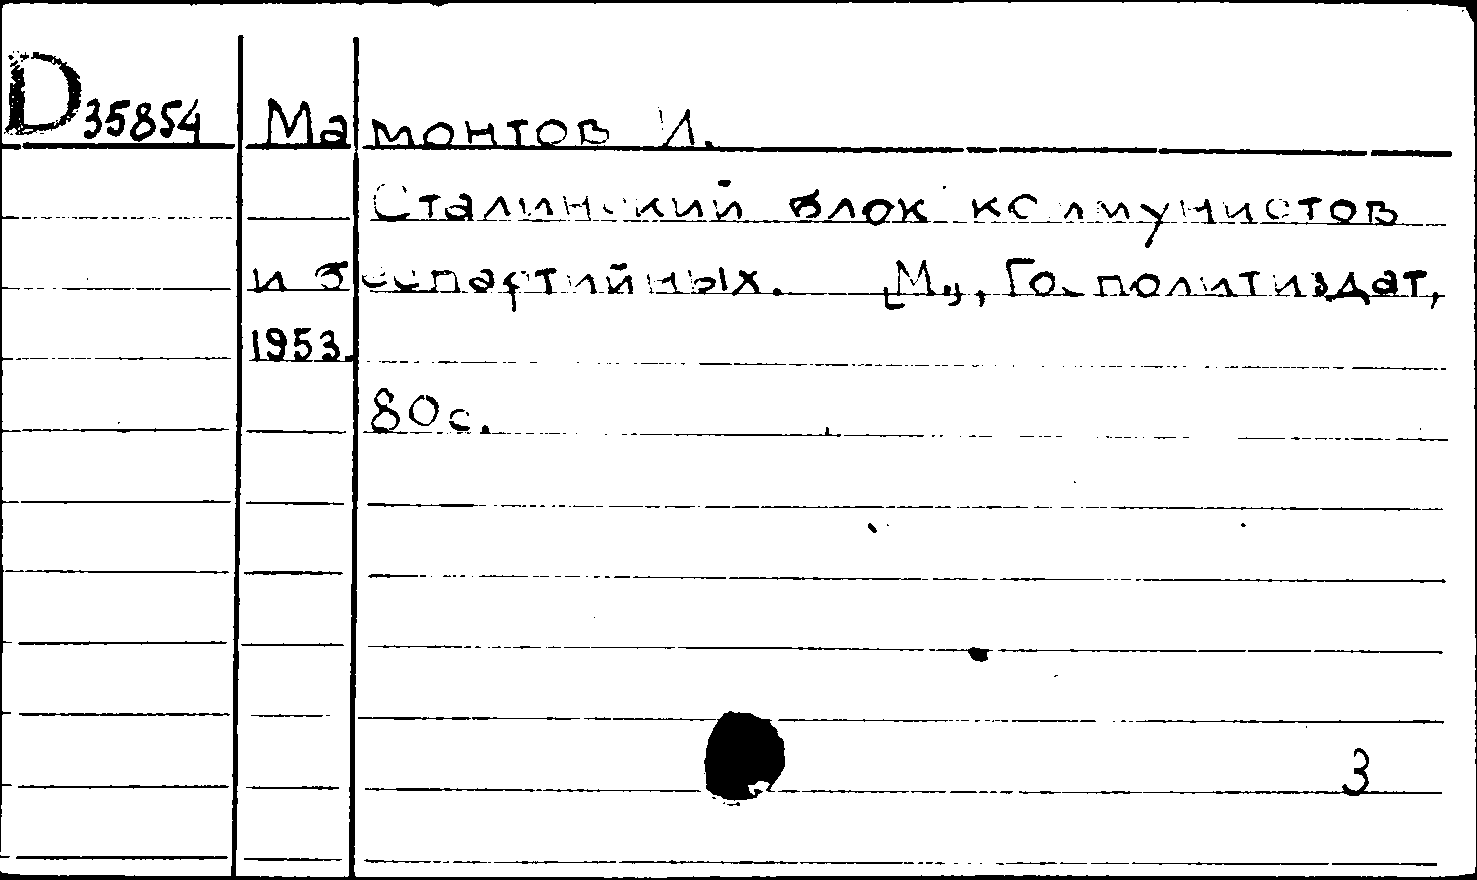 D 35854 Мамонтов И.
Сталинский блок коммунистов
и беспартийных. [М.], Госполитиздат,
1953.
80с.
3